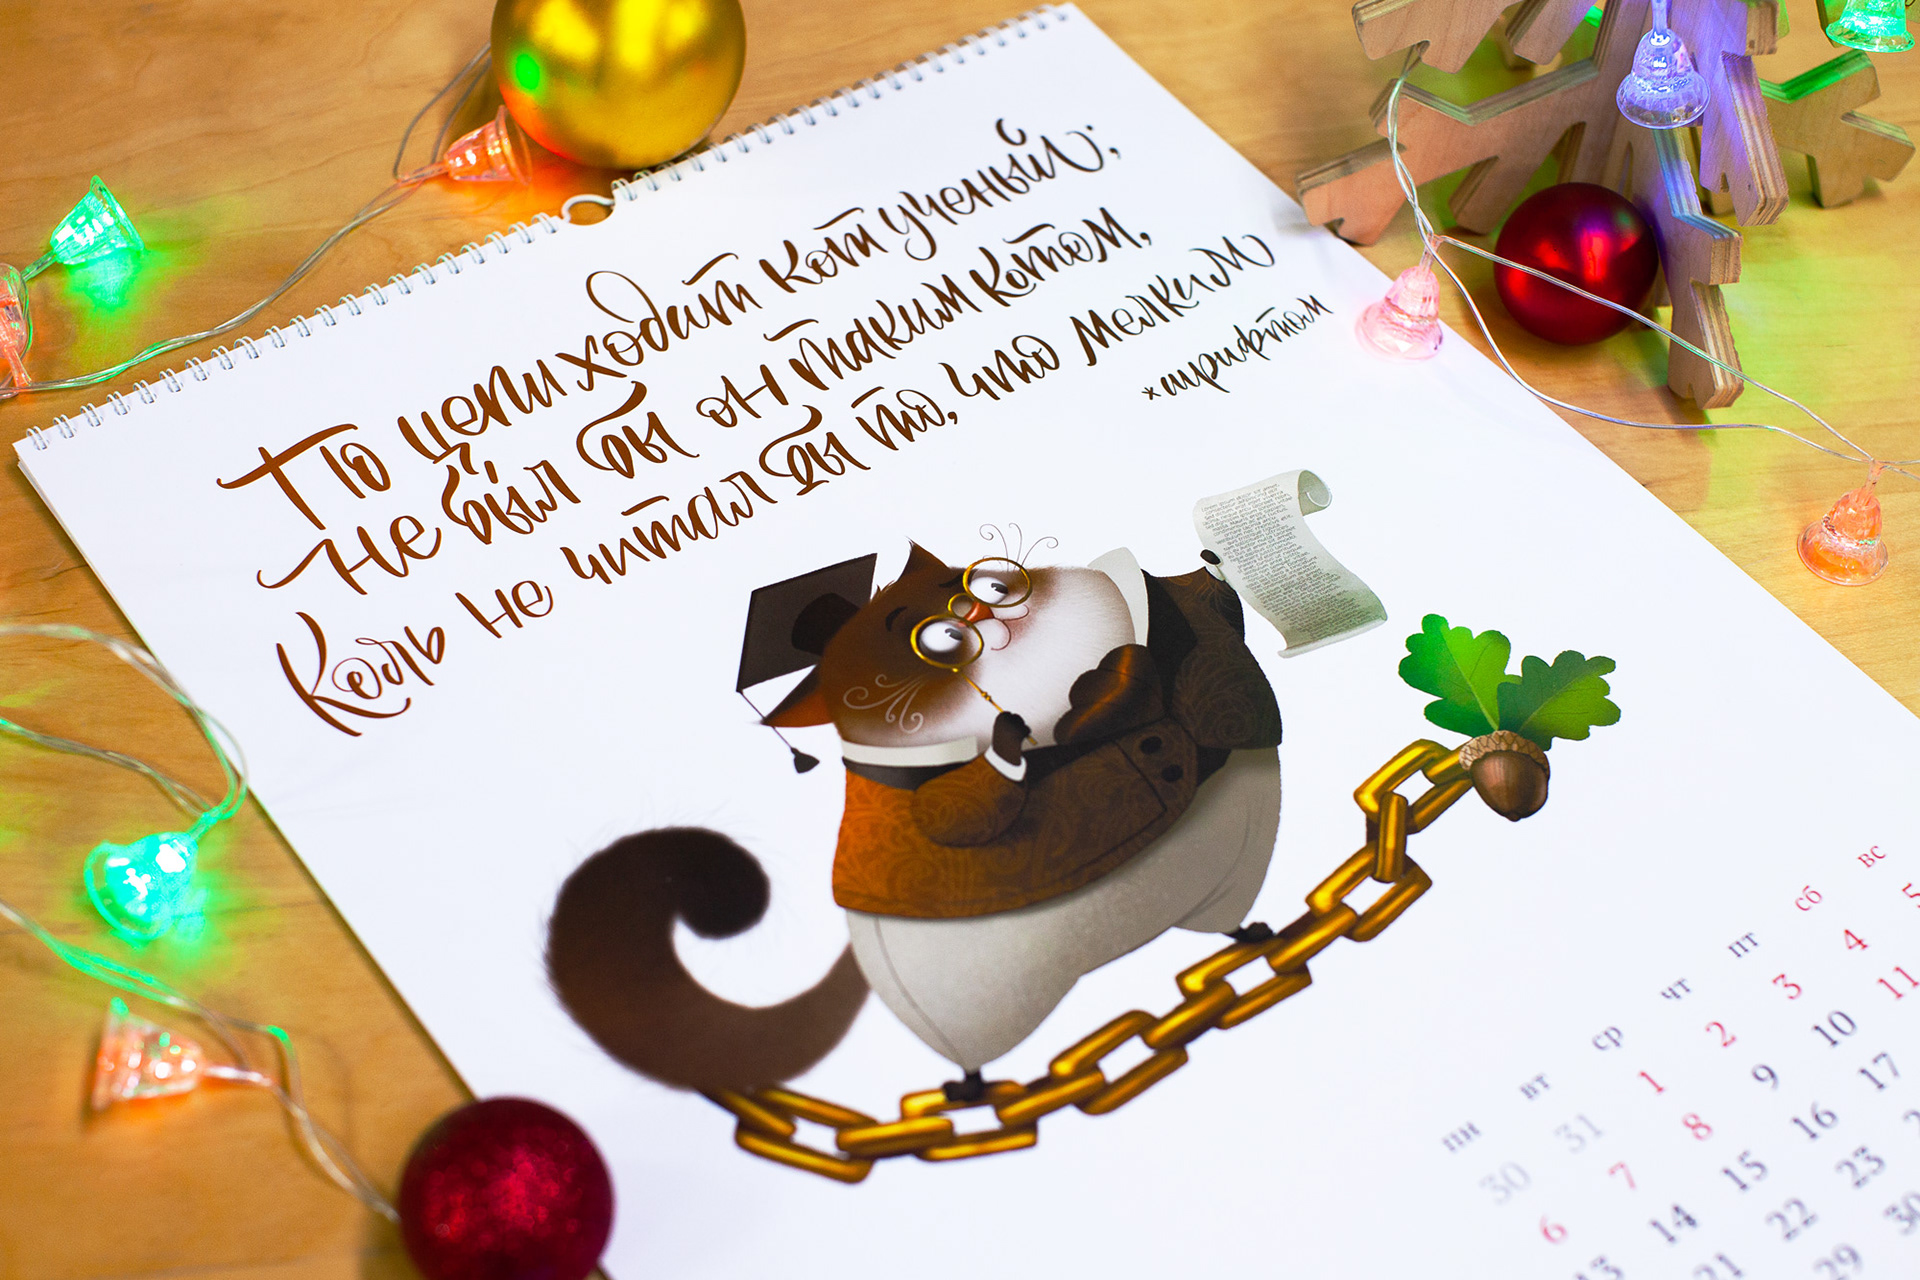 По цепи ходит кот ученый;
не был бы он таким котом,
Коль не читал бы то, что мелким
*шрифтом
Lorem ipsum dolor sit amet,
пн вт ср чт пт сб вс
30 31 1 2 3 4 5
6 7 8 9 10 11
13 14 15 16 17
21 22 23
29 30